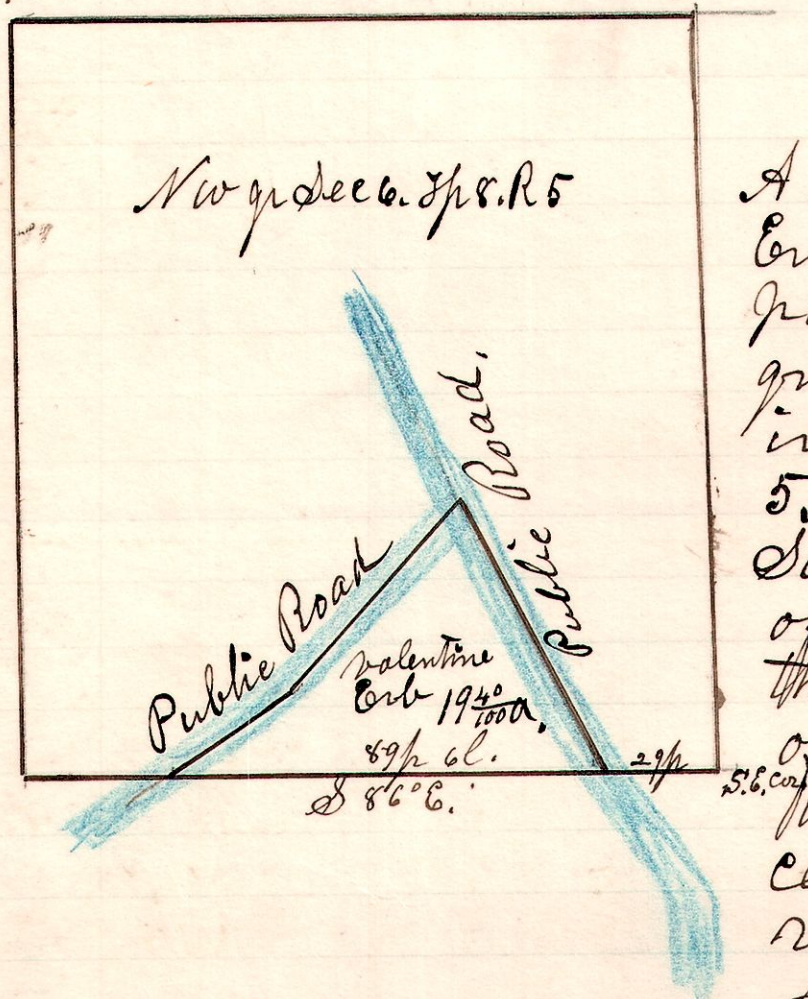 NW qr Sec 6. Tp 8. R 5
Public Road.
Public Road
Valentine
Erb 19 40/100 a.
89p 6l.
S 86° E.
29p
S.E. cor
A
Er
p
gr
in
5.
So
of
th
of
ce